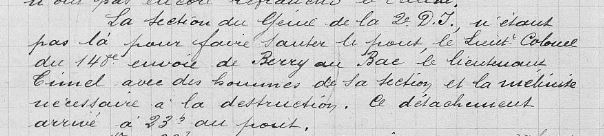 La section du Génie de la 2e D.I, n'étant
pas là pour faire sauter le pont, le Lieutt Colonel
du 148e envoie de Berry au Bac le lieutenant
avec des hommes de sa section et la mélinite
nécessaire à la destruction. Ce détachement
arrive à 23h au pont.